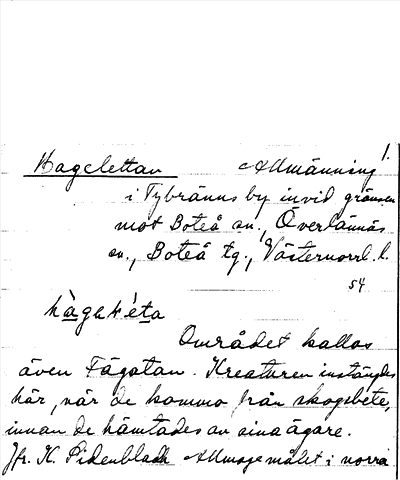 1.
Hagelettan Allmänning
i Tybränns by invid gränsen
mot Boteå sn., Överlännäs
sn., Boteå tg., Västernorrl. l.
54
Området kallas
även Fägatan. Kreaturen instängdes
här, när de kommo från skogsbete,
innan de hämtades av sina ägare.
Jfr. K. Sidenbladh Allmogemålet i norra